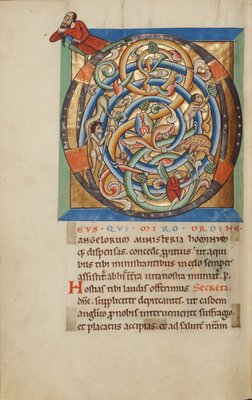 D
EVS · QVI · MIRO · ORDINE
ANGELORVM MINISTERIA HOMINVM
q; dispensas. concede propitius. ut a qui
bus tibi ministrantibus in celo semper
assistit. ab his in terra uita nostra muniat. p
Hostias tibi laudis offerimus Secreta
dne. suppliciter deprecantes. ut easdem
anglico pro nobis interueniente suffragio
et placatus accipias. et ad salute nram